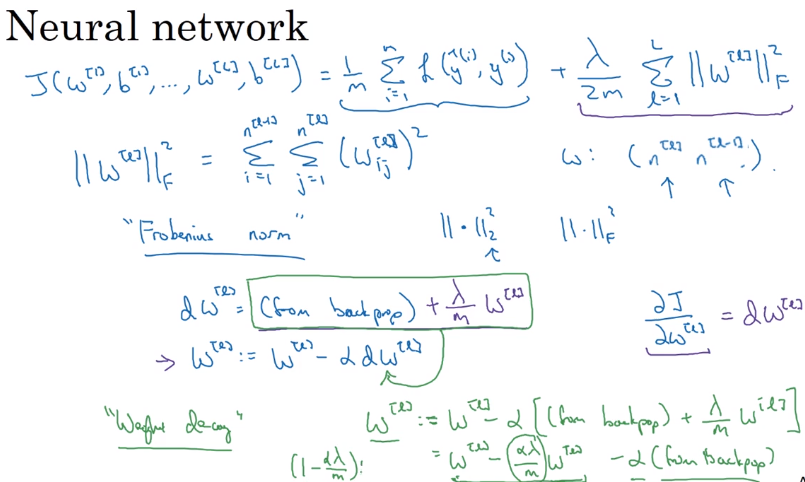 Neural network
J(w^[1], b^[1], ..., w^[L], b^[L]) = 1/m Σ_{i=1}^{n} L(ŷ^(i), y^(i)) + λ/2m Σ_{l=1}^{L} ||W^[l]||_F^2
||W^[l]||_F^2 = Σ_{i=1}^{n^[l-1]} Σ_{j=1}^{n^[l]} (w_ij^[l])^2 w: (n^[l] n^[l-1]).
"Frobenius norm" ||·||_2^2 ||·||_F^2
dw^[l] = (from backprop) + λ/m w^[l] ∂J/∂w^[l] = dw^[l]
→ w^[l] := w^[l] - α dw^[l]
"Weight decay" w^[l] := w^[l] - α[(from backpop) + λ/m w^[l]]
(1 - αλ/m): = w^[l] - (αλ/m) w^[l] - α(from backpop)